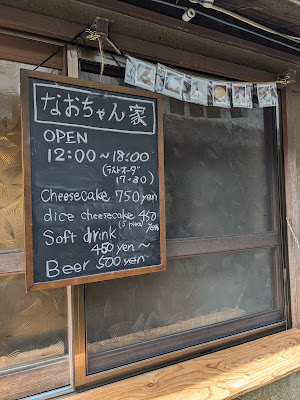 なおちゃん家
OPEN
12:00～18:00
(ラストオーダー
17:30)
Cheesecake 750yen
dice cheesecake 450
(5 piece) yen
Soft drink
450yen～
Beer 500yen